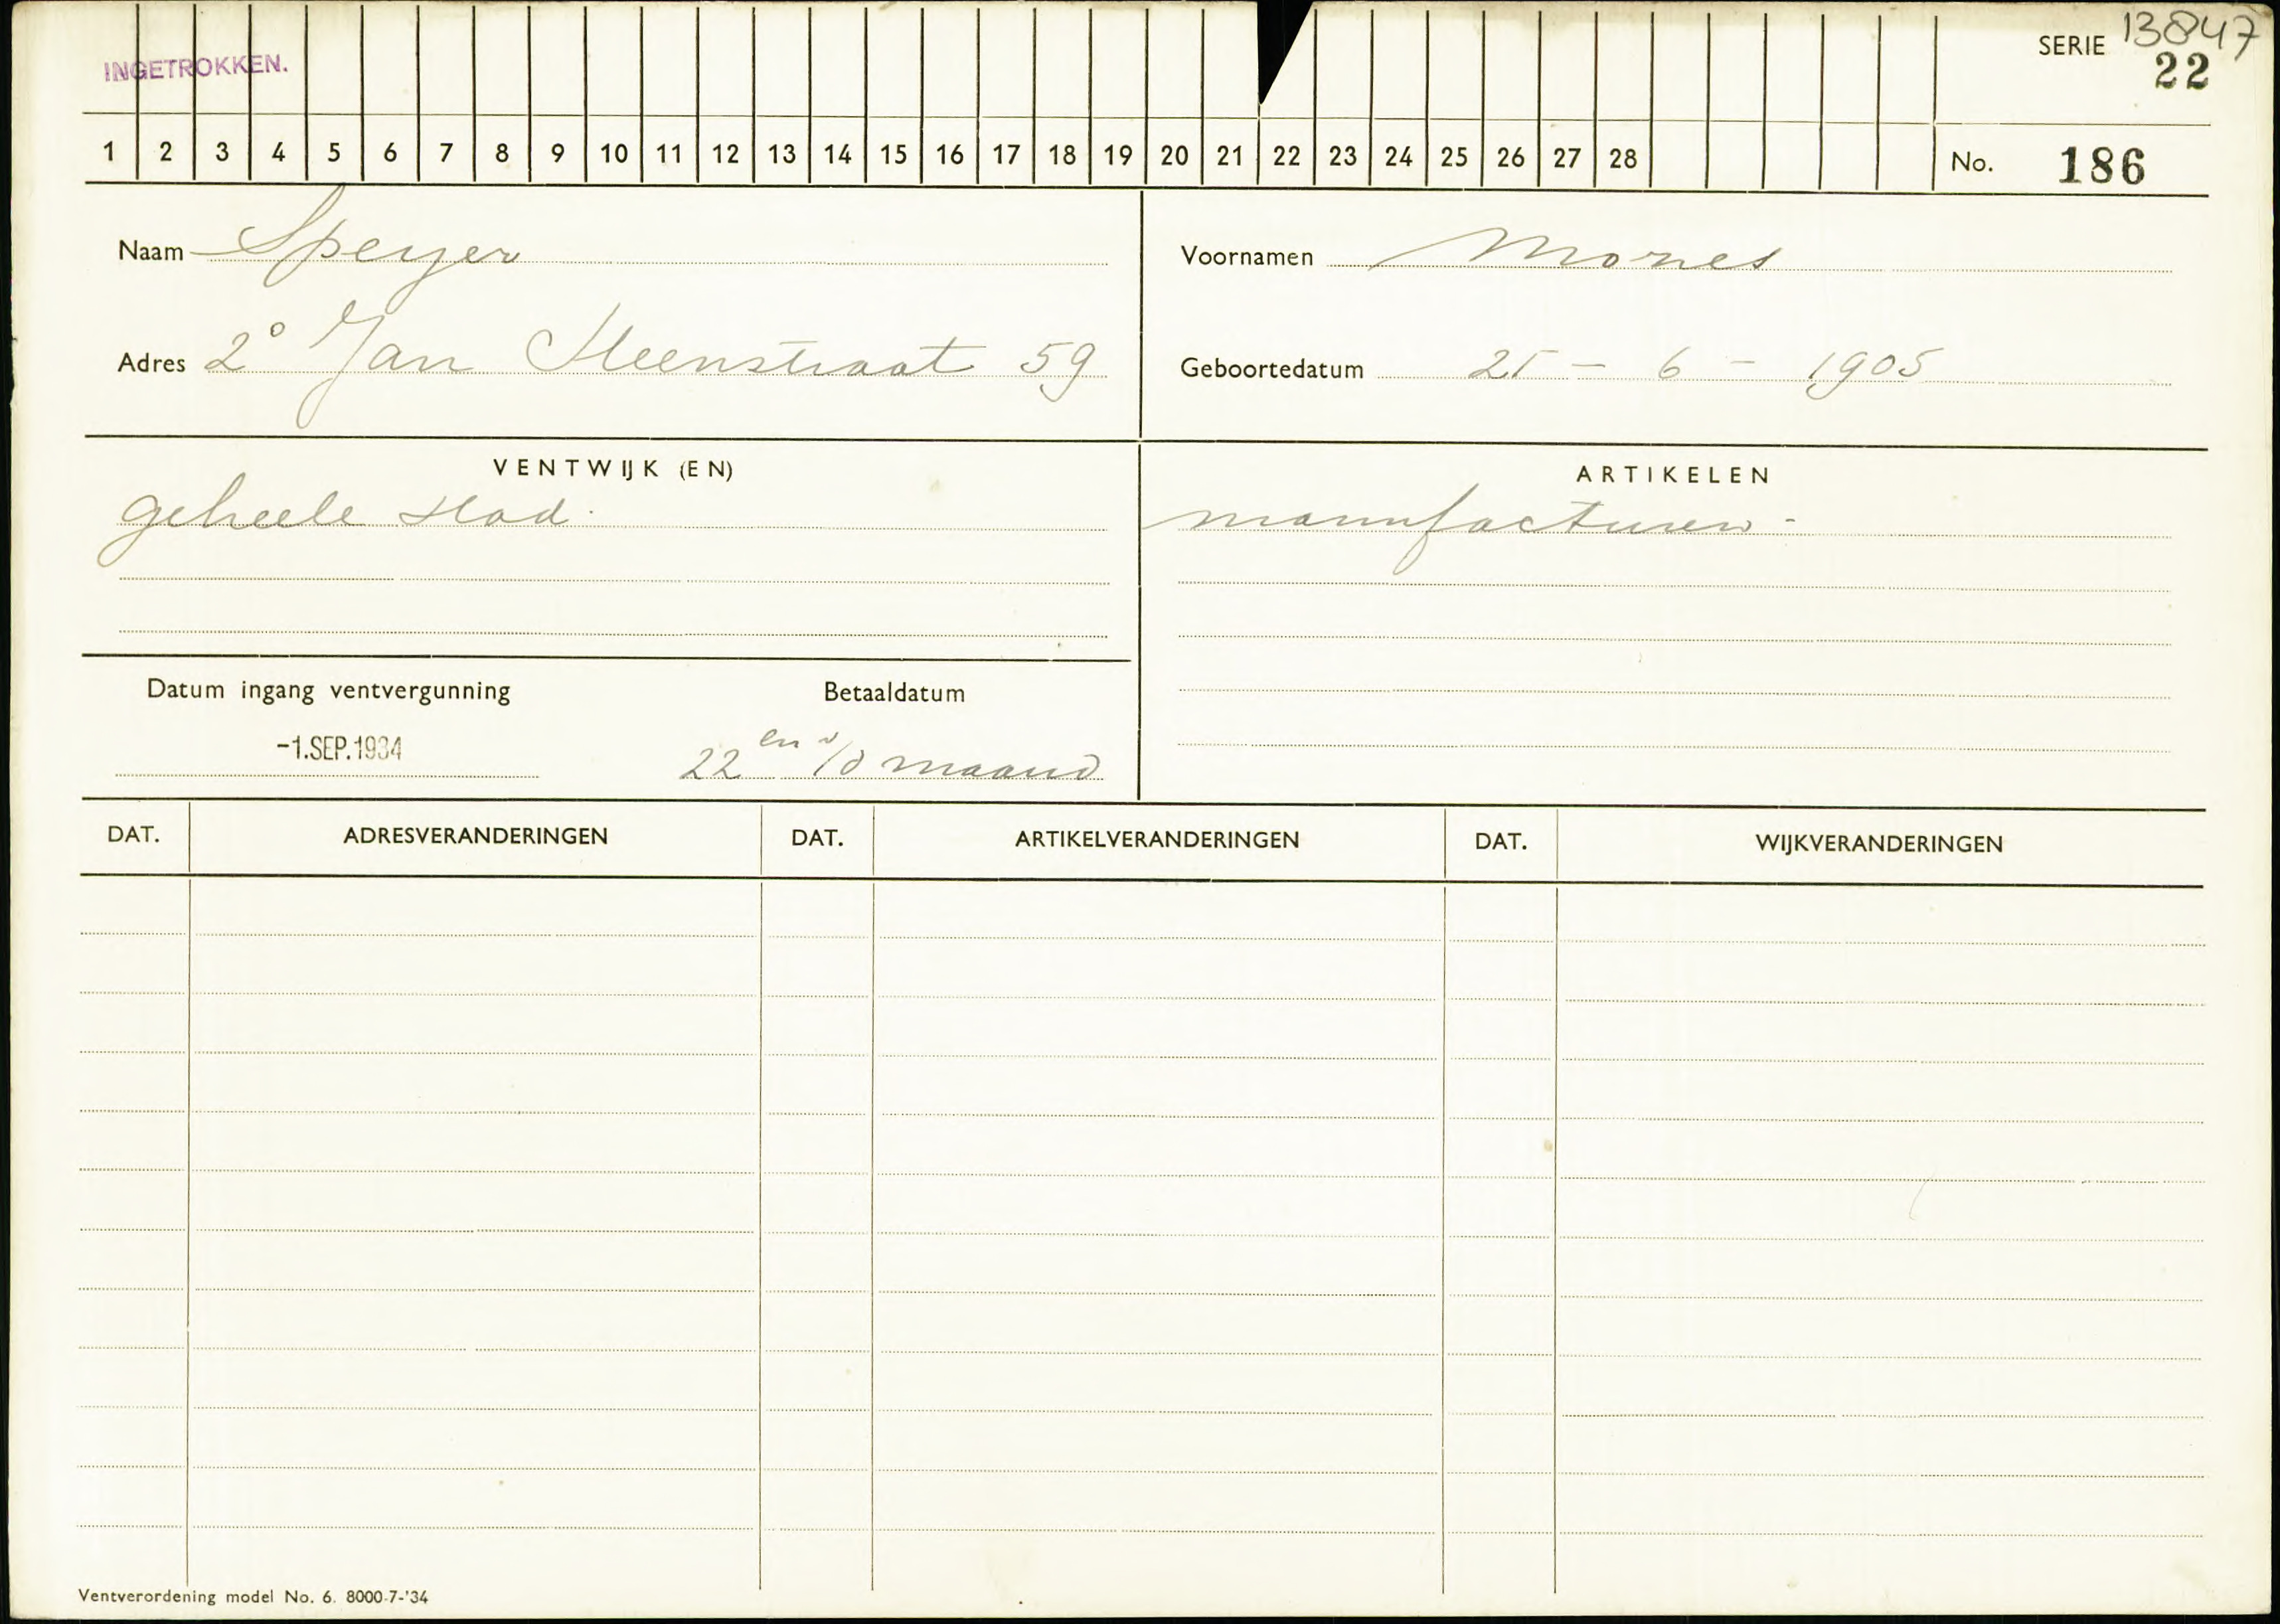 INGETROKKEN.
13847
SERIE 22
1 2 3 4 5 6 7 8 9 10 11 12 13 14 15 16 17 18 19 20 21 22 23 24 25 26 27 28 No. 186
Naam Speyer Voornamen Mozes
Adres 2e Jan Steenstraat 59 Geboortedatum 25 – 6 – 1905
VENTWIJK (EN) ARTIKELEN
geheele stad. manufacturen -
Datum ingang ventvergunning Betaaldatum
-1.SEP.1934 22en v/d maand
DAT. ADRESVERANDERINGEN DAT. ARTIKELVERANDERINGEN DAT. WIJKVERANDERINGEN
Ventverordening model No. 6. 8000-7-'34